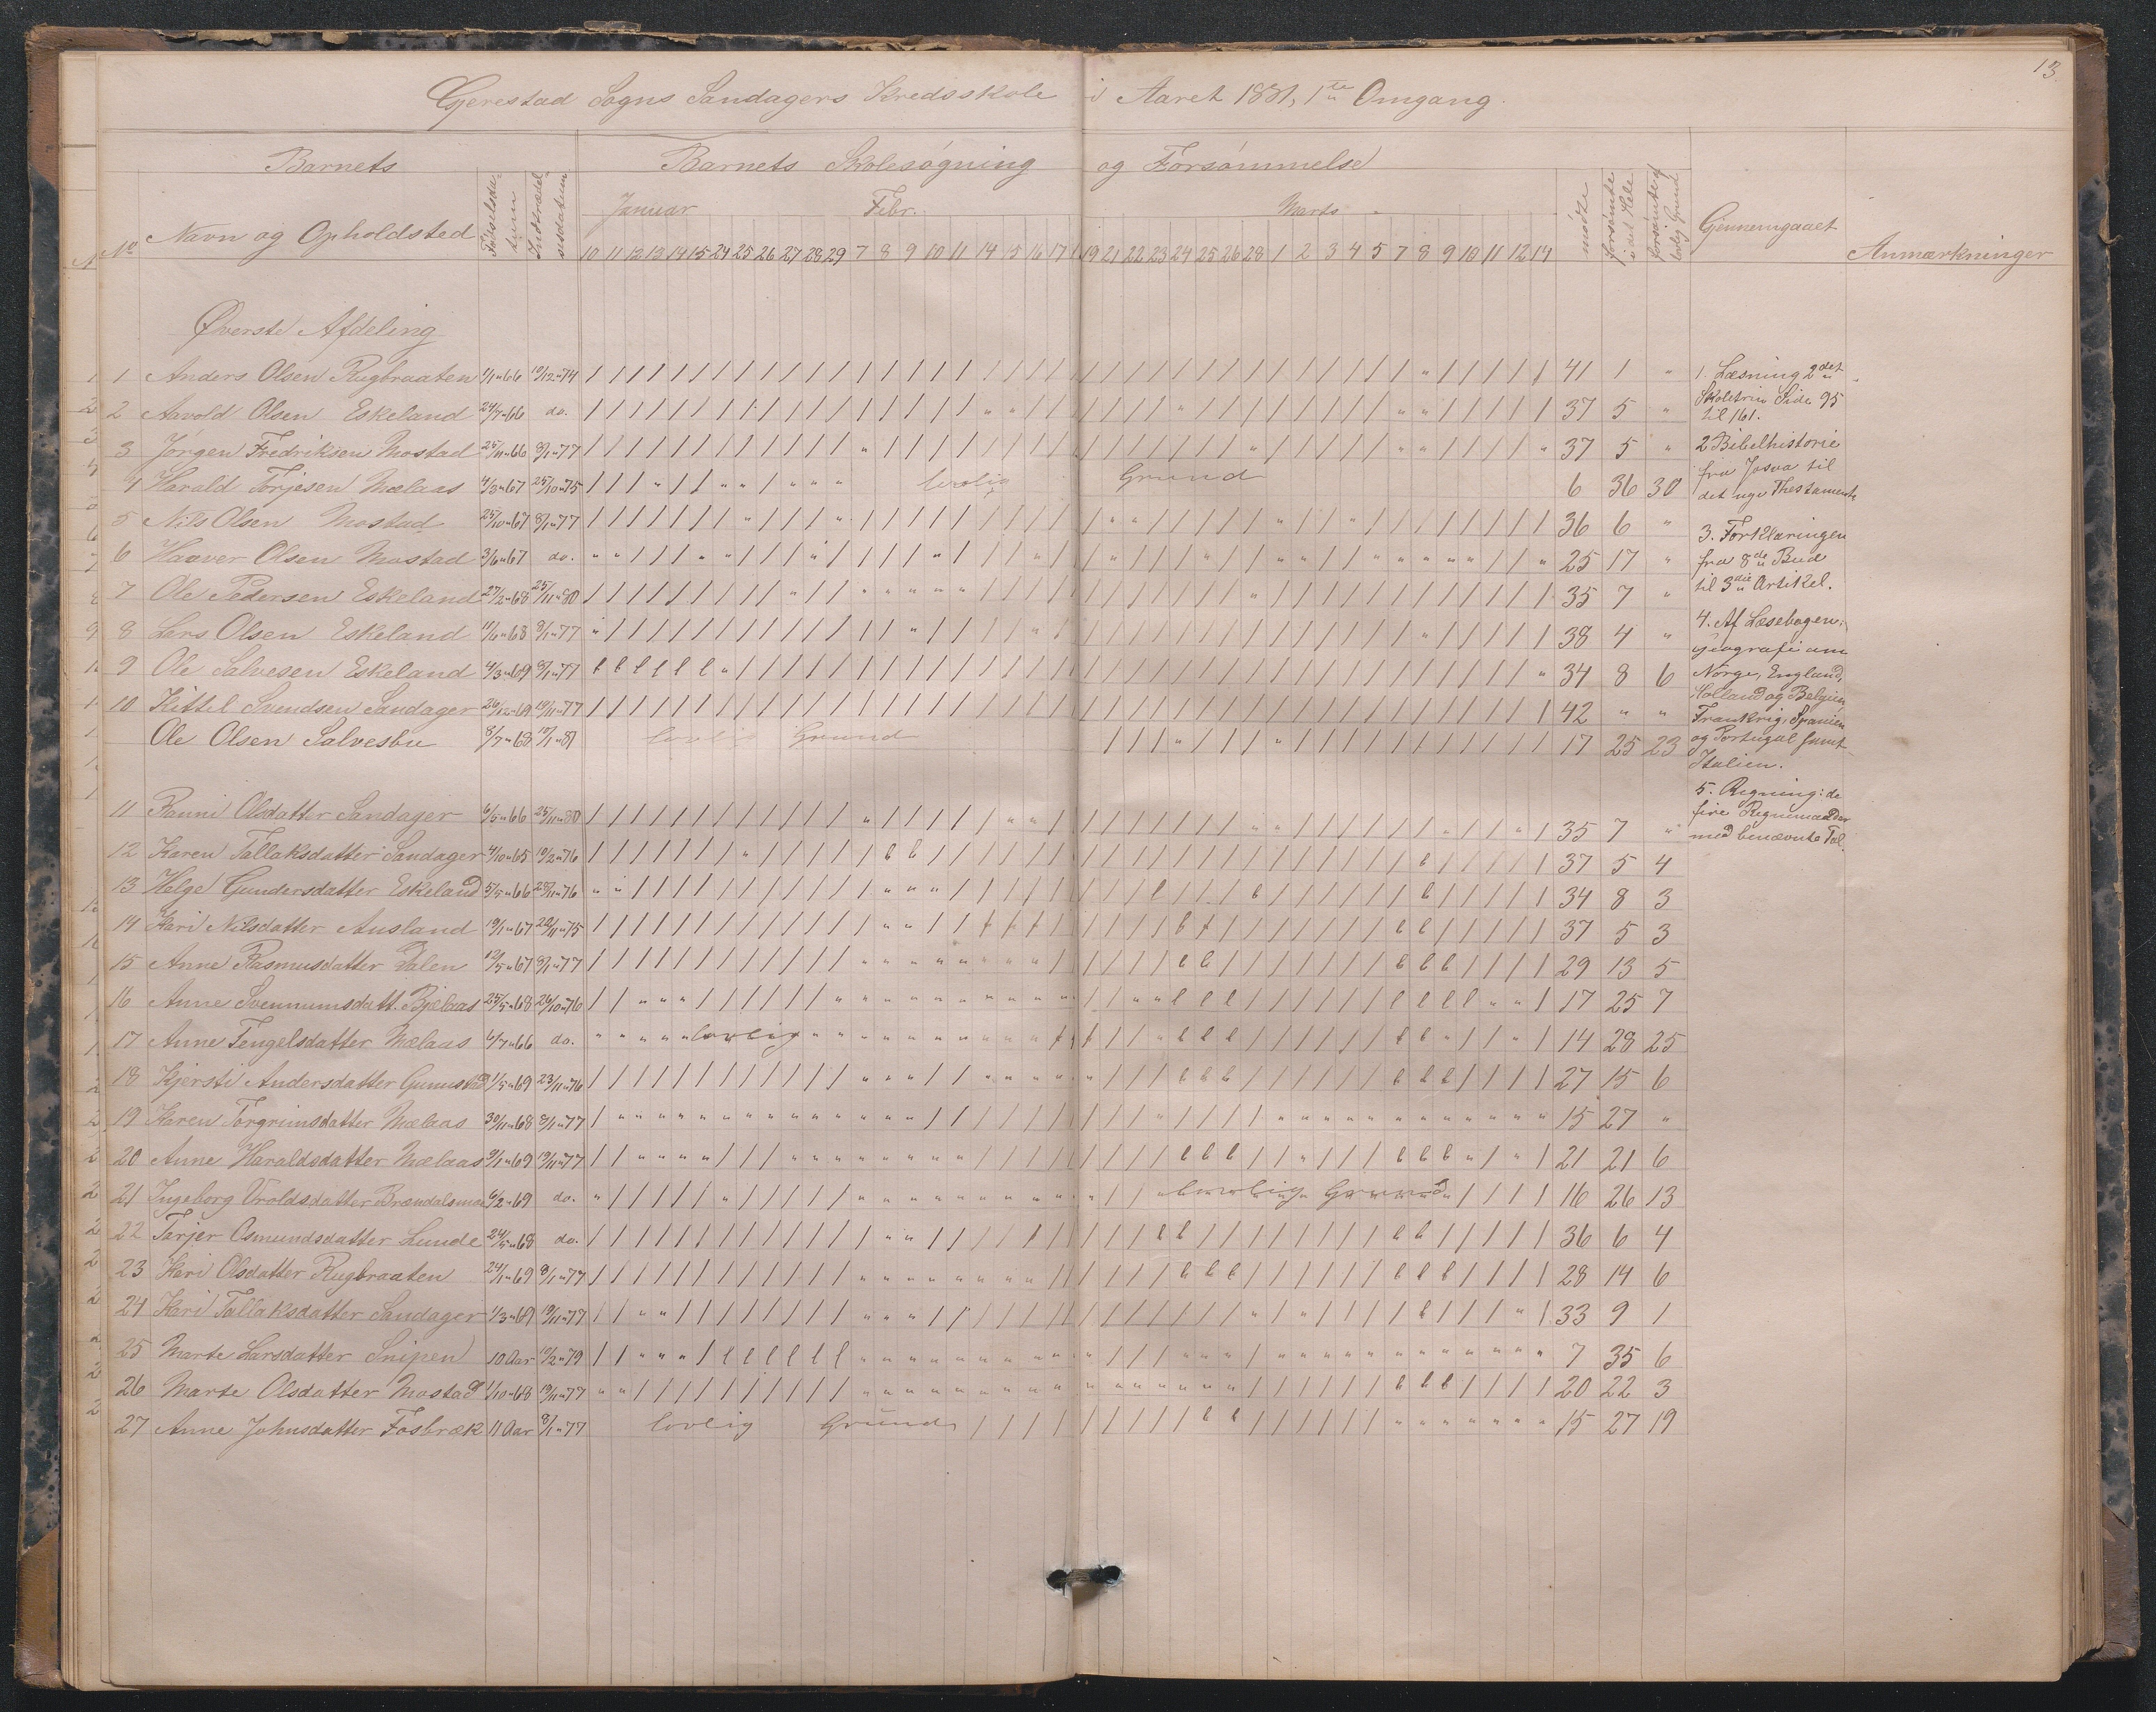 13
Gjerestad Sogns Sandagers Kredsskole i Aaret 1881, 1ste Omgang.
Barnets Barnets Skolesøgning og Forsømmelse
No Navn og Opholdsted Fødselsdatum Indtrædelsesdatum Januar Febr. Marts mødte forsømte i det Hele forsømte af lovlig Grund Gjennemgaaet Anmærkninger
10 11 12 13 14 15 24 25 26 27 28 29 7 8 9 10 11 14 15 16 17 19 21 22 23 24 25 26 28 1 2 3 4 5 7 8 9 10 11 12 14
Øverste Afdeling
1 Anders Olsen Rugbraaten 1/1 66 10/12 74 41 1 "
2 Aavold Olsen Eskeland 24/7 66 do. 37 5 "
3 Jørgen Fredriksen Mostad 25/11 66 8/1 77 37 5 "
4 Harald Torjesen Mælaas 4/3 67 25/10 75 lovlig Grund 6 36 30
5 Nils Olsen Mostad 25/10 67 8/1 77 36 6 "
6 Haaver Olsen Mostad 3/6 67 do. 25 17 "
7 Ole Pedersen Eskeland 27/2 68 25/11 80 35 7 "
8 Lars Olsen Eskeland 11/6 68 8/1 77 38 4 "
9 Ole Salvesen Eskeland 4/3 69 8/1 77 34 8 6
10 Kittel Svendsen Sandager 26/12 69 19/11 77 42 " "
Ole Olsen Salvesbu 8/7 68 10/1 81 lovlig Grund 17 25 23
11 Ranni Olsdatter Sandager 6/5 66 25/11 80 35 7 "
12 Karen Tallaksdatter Sandager 4/10 65 10/2 76 37 5 4
13 Helge Gundersdatter Eskeland 5/5 66 25/11 76 34 8 3
14 Kari Nilsdatter Ausland 19/1 67 22/11 75 37 5 3
15 Anne Rasmusdatter Dalen 12/5 67 8/1 77 29 13 5
16 Anne Svennumsdatt. Bjelaas 25/5 68 26/10 76 17 25 7
17 Anne Tengelsdatter Mælaas 6/7 66 do. lovlig 14 28 25
18 Kjersti Andersdatter Gunnstad 1/5 69 23/11 76 27 15 6
19 Karen Torgrimsdatter Mælaas 30/11 68 8/1 77 15 27 "
20 Anne Haraldsdatter Mælaas 9/1 69 19/11 77 21 21 6
21 Ingeborg Vroldsdatter Brændalsmo 6/2 69 do. lovlig Grund 16 26 13
22 Tarjer Osmundsdatter Lunde 24/5 68 do. 36 6 4
23 Kari Olsdatter Rugbraaten 24/1 69 8/1 77 28 14 6
24 Kari Tallaksdatter Sandager 1/3 69 19/11 77 33 9 1
25 Marte Larsdatter Snipen 10 Aar 10/2 79 7 35 6
26 Marte Olsdatter Mostad 1/10 68 19/11 77 20 22 3
27 Anne Johnsdatter Fosbræk 11 Aar 8/1 77 lovlig Grund 15 27 19
1. Læsning 2det
Skoletrin Side 95
til 161.
2 Bibelhistorie
fra Josva til
det nye Thestamente
3. Forklaringen
fra 8de Bud
til 3die Artikel.
4. Af Læsebogen:
Geografi om
Norge, England,
Holland og Belgien
Frankrig, Spanien
og Portugal samt
Italien.
5. Regning: de
fire Regnemaader
med benævnte Tal.